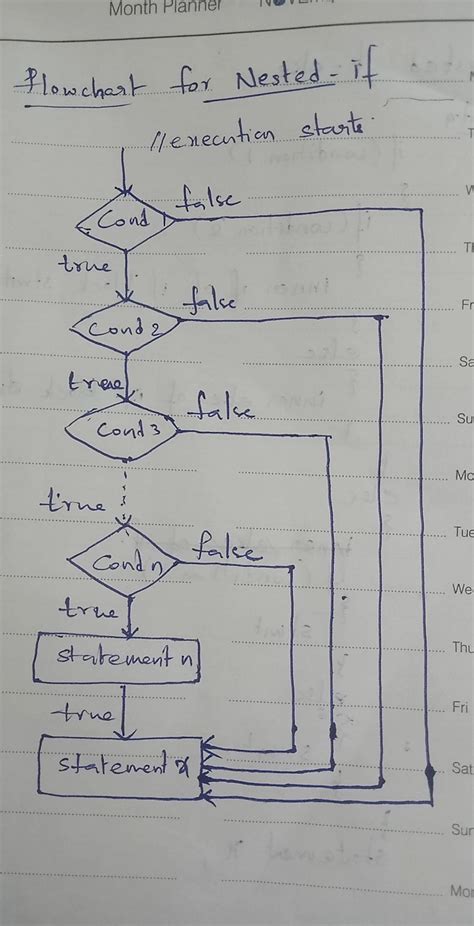 Month Planner
Flowchart for Nested-if
//execution starts.
Cond 1
false
true
Cond 2
false
true
Cond 3
false
true
Cond n
false
true
statement n
true
statement x
Fr
Sa
Su
Mo
Tue
We
Thu
Fri
Sat
Sun
Mon